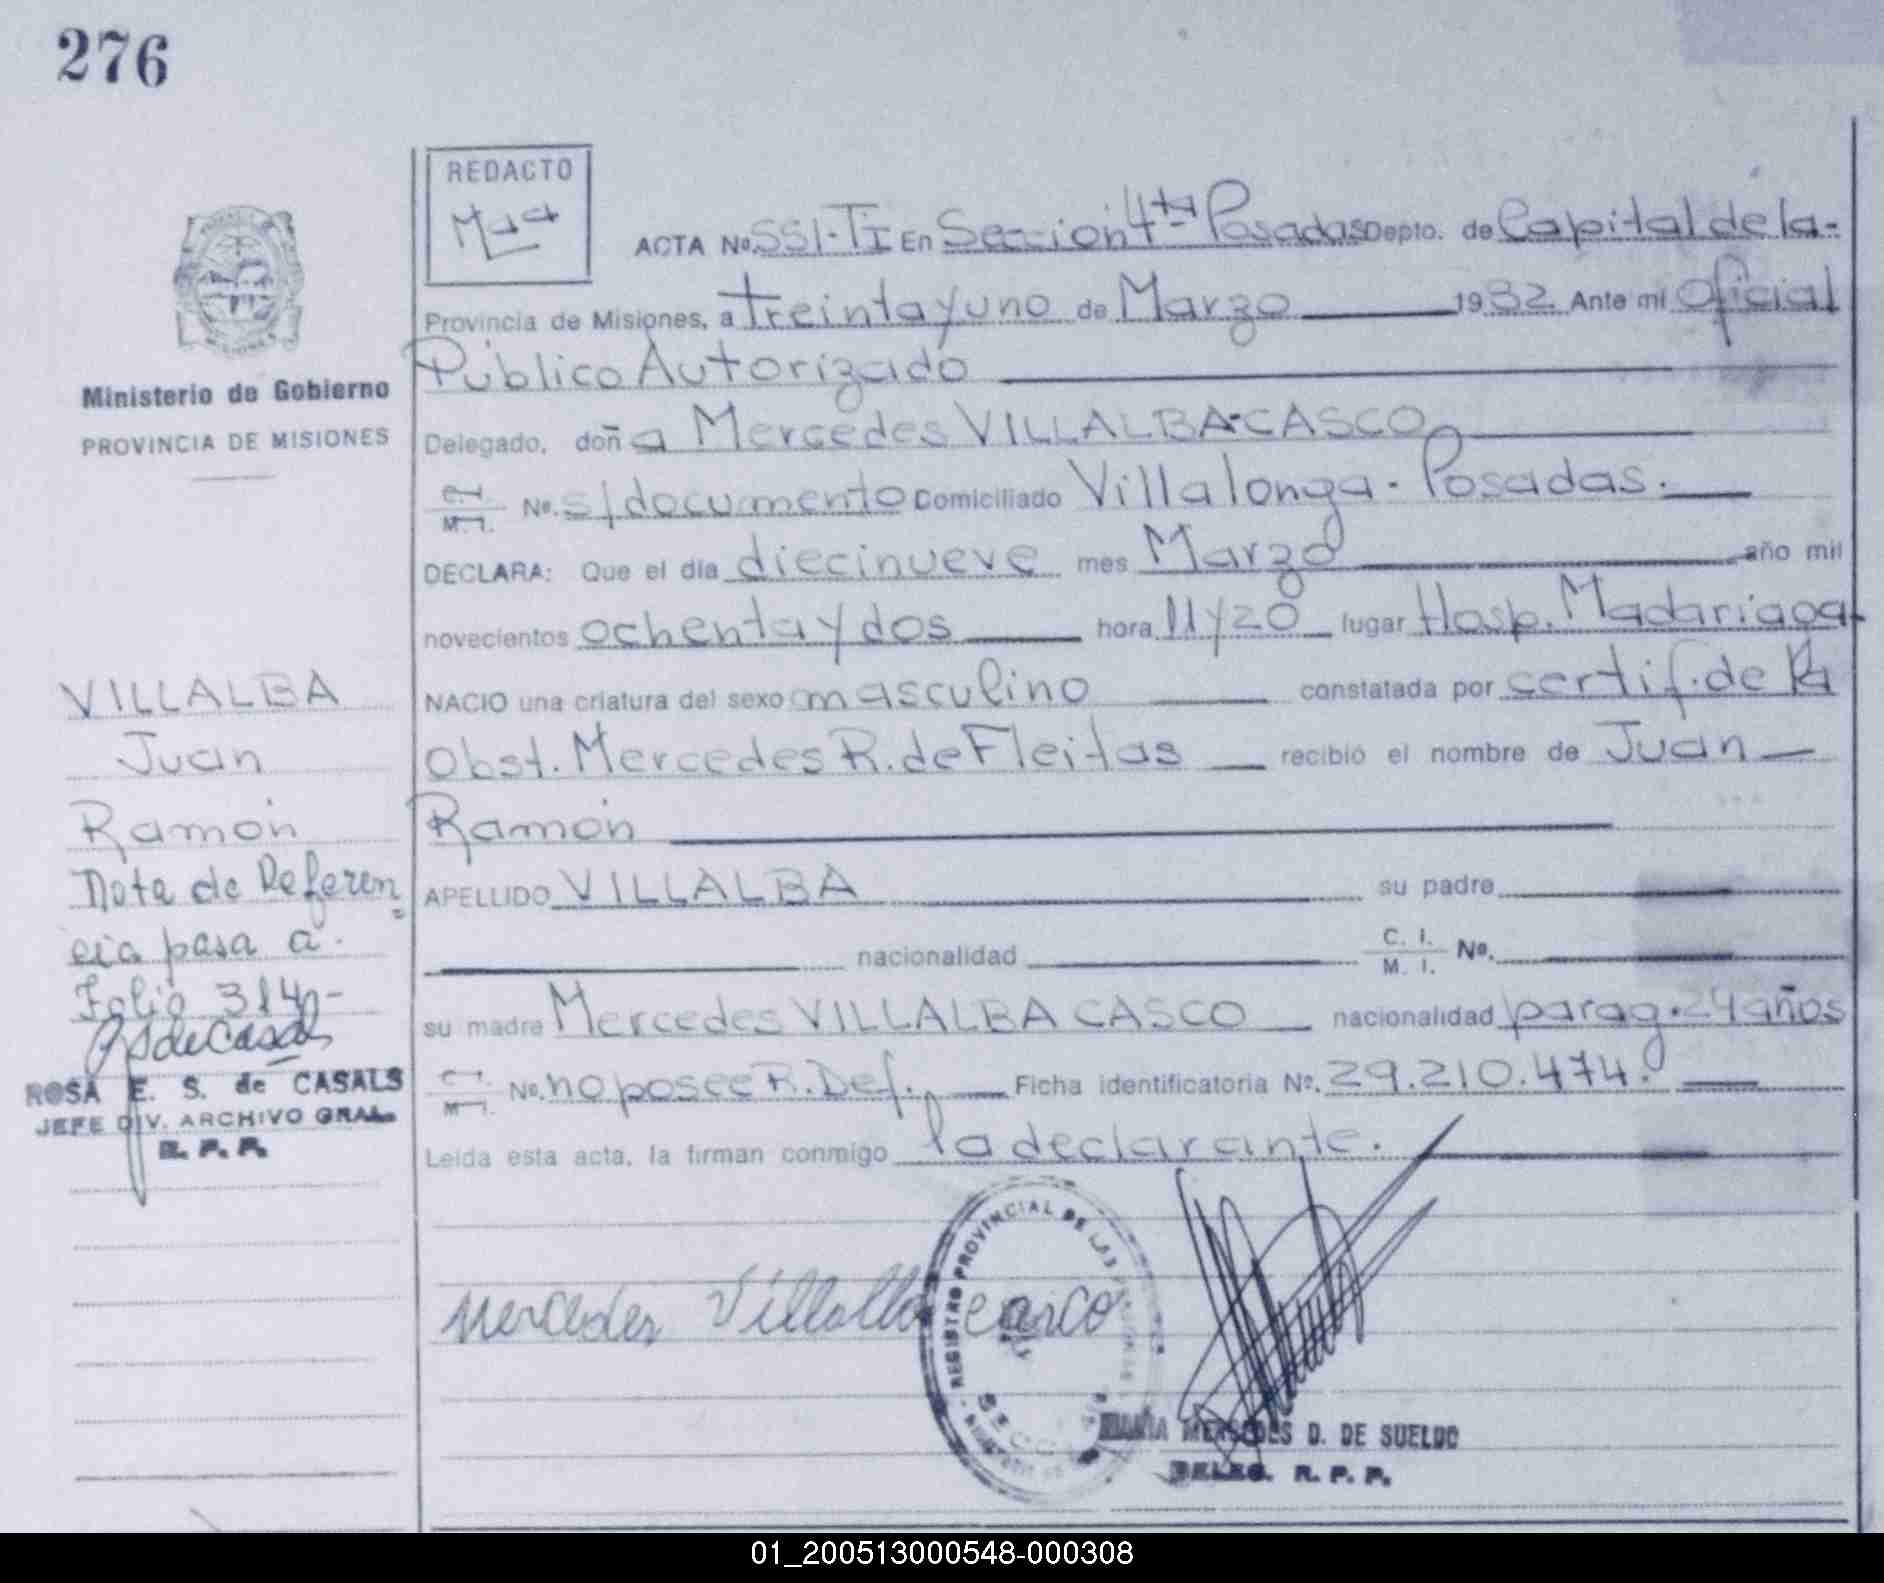 276
REDACTO
ACTA No. 551-TI En Sección 4ta Posadas Depto. de Capital de la-
Provincia de Misiones, a treinta y uno de Marzo 1982 Ante mi Oficial
Público Autorizado
Ministerio de Gobierno
PROVINCIA DE MISIONES
Delegado, doña Mercedes VILLALBA-CASCO
C.I. M.I. No. s/documento Domiciliado Villalonga - Posadas.
DECLARA: Que el día diecinueve mes Marzo año mil
novecientos ochenta y dos hora 11 y 20 lugar Hosp. Madariaga-
NACIO una criatura del sexo masculino constatada por certif. de la
Obst. Mercedes R. de Fleitas recibió el nombre de Juan
Ramón
APELLIDO VILLALBA su padre
nacionalidad C. I. M. I. No.
su madre Mercedes VILLALBA CASCO nacionalidad parag. 24 años
C.I. M.I. No. no posee R. Def. Ficha identificatoria No. 29.210.474.
Leída esta acta, la firman conmigo la declarante.
VILLALBA
Juan
Ramón
Nota de Referen
cia pasa a
Folio 314-
RSdeCasals
ROSA E. S. de CASALS
JEFE DIV. ARCHIVO GRAL.
R. P. P.
Mercedes Villalba casco
REGISTRO PROVINCIAL DE LAS PERSONAS
MARIA MERCEDES D. DE SUELDO
DELEG. R. P. P.
01_200513000548-000308